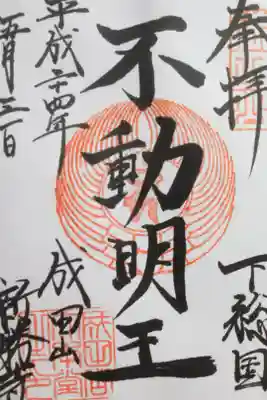 奉拝
下総国
不動明王
成田山
新勝寺
平成二十四年
五月三日